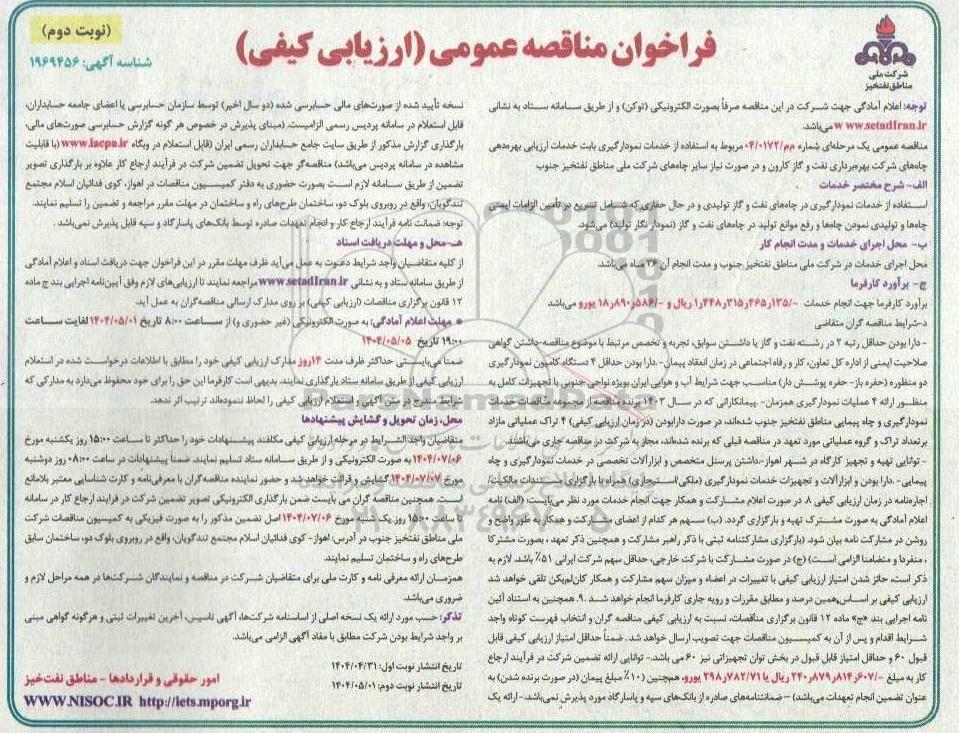 (نوبت دوم)
فراخوان مناقصه عمومی (ارزیابی کیفی)
شناسه آگهی: ۱۹۶۹۴۵۶
شرکت ملی
مناطق نفتخیز
توجه: اعلام آمادگی جهت شرکت در این مناقصه صرفاً بصورت الکترونیکی (توکن) و از طریق سامانه ستاد به نشانی
www.setadIran.ir می‌باشد.
مناقصه عمومی یک مرحله‌ای شماره م‌م/۰۴/۰۱۷۲ مربوط به استفاده از خدمات نمودارگیری بابت خدمات ارزیابی بهره‌دهی
چاه‌های شرکت بهره‌برداری نفت و گاز کارون و در صورت نیاز سایر چاه‌های شرکت ملی مناطق نفتخیز جنوب
الف- شرح مختصر خدمات
استفاده از خدمات نمودارگیری در چاه‌های نفت و گاز تولیدی و در حال حفاری که شامل تسریع در تأمین الزامات ایمنی
چاه‌ها و تولیدی نمودن چاه‌ها و رفع موانع تولید در چاه‌های نفت و گاز (نمودار نگار تولید) می‌شود.
ب- محل اجرای خدمات و مدت انجام کار
محل اجرای خدمات در شرکت ملی مناطق نفتخیز جنوب و مدت انجام آن ۳۶ ماه می‌باشد.
ج- برآورد کارفرما
برآورد کارفرما جهت انجام خدمات -/۱٫۴۴۸٫۳۱۵٫۴۶۵٫۱۳۵ ریال و -/۱۸٫۸۹۰٫۵۸۶ یورو می‌باشد
د-شرایط مناقصه گران متقاضی
- دارا بودن حداقل رتبه ۲ در رشته نفت و گاز یا داشتن سوابق، تجربه و تخصص مرتبط با موضوع مناقصه-داشتن گواهی
صلاحیت ایمنی از اداره کل تعاون، کار و رفاه اجتماعی در زمان انعقاد پیمان- دارا بودن حداقل ۴ دستگاه کامیون نمودارگیری
دو منظوره (حفره باز- حفره پوشش دار) مناسب جهت شرایط آب و هوایی ایران بویژه نواحی جنوبی با تجهیزات کامل به
منظور ارائه ۴ عملیات نمودارگیری همزمان- پیمانکارانی که در سال ۱۴۰۳ برنده مناقصه از مجموعه مناقصات خدمات
نمودارگیری و چاه پیمایی مناطق نفتخیز جنوب شده‌اند، در صورت دارابودن (در زمان ارزیابی کیفی) ۴ تراک عملیاتی مازاد
برتعداد تراک و گروه عملیاتی مورد تعهد در مناقصه قبلی که برنده شده‌اند، مجاز به شرکت در مناقصه جاری می‌باشند.
- توانایی تهیه و تجهیز کارگاه در شهر اهواز-داشتن پرسنل متخصص و ابزارآلات تخصصی در خدمات نمودارگیری و چاه
پیمایی- دارا بودن و ابزارآلات و تجهیزات خدمات نمودارگیری (ملکی/استیجاری) همراه با بارگزاری مستندات مالکیت/
اجاره‌نامه در زمان ارزیابی کیفی ۸. در صورت اعلام مشارکت و همکار جهت انجام خدمات مورد نظر می‌بایست: (الف) نامه
اعلام آمادگی به صورت مشترک تهیه و بارگزاری گردد. (ب) سهم هر کدام از اعضای مشارکت و همکار به طور واضح و
روشن در مشارکت نامه بیان شود. (بارگزاری مشارکتنامه ثبتی با ذکر راهبر مشارکت و همچنین ذکر تعهد ، بصورت مشترکا
، منفردا و متضامنا الزامی است) (ج) در صورت مشارکت با شرکت خارجی، حداقل سهم شرکت ایرانی ۵۱٪ باشد. لازم به
ذکر است، حائز شدن امتیاز ارزیابی کیفی با تغییرات در اعضاء و میزان سهم مشارکت و همکار کان‌لم‌یکن تلقی خواهد شد
ارزیابی کیفی بر اساس‌همین درصد و مطابق مقررات و رویه جاری کارفرما انجام خواهد شد .۹. همچنین به استناد آئین
نامه اجرایی بند «ج» ماده ۱۲ قانون برگزاری مناقصات، نسبت به ارزیابی کیفی مناقصه گران و انتخاب فهرست کوتاه واجد
شرایط اقدام و پس از آن به کمیسیون مناقصات جهت تصویب ارسال خواهد شد . ضمناً حداقل امتیاز ارزیابی کیفی قابل
قبول ۶۰ و حداقل امتیاز قابل قبول در بخش توان تجهیزاتی نیز ۶۰ می باشد.- توانایی ارائه تضمین شرکت در فرآیند ارجاع
کار به مبلغ -/۲۴۰٫۸۷۹٫۸۱۴٫۶۰۷ ریال یا ۲۹۸٫۷۸۲/۷۱ یورو. همچنین (۱۰٪ مبلغ پیمان (در صورت برنده شدن) به
عنوان تضمین انجام تعهدات می‌باشد) – ضمانتنامه‌های صادره از بانک‌های سپه و پاسارگاد مورد پذیرش نمی‌باشد.- ارائه یک
نسخه تأیید شده از صورت‌های مالی حسابرسی شده (دو سال اخیر) توسط سازمان حسابرسی یا اعضای جامعه حسابداران،
قابل استعلام در سامانه پردیس رسمی الزامیست. (مبنای پذیرش در خصوص هر گونه گزارش حسابرسی صورت‌های مالی،
بارگذاری گزارش مذکور از طریق سایت جامع حسابداران رسمی ایران (قابل استعلام در وبگاه www.iacpa.ir (با قابلیت
مشاهده در سامانه پردیس می‌باشد) مناقصه‌گر جهت تحویل تضمین شرکت در فرآیند ارجاع کار علاوه بر بارگذاری تصویر
تضمین از طریق سامانه لازم است بصورت حضوری به دفتر کمیسیون مناقصات در اهواز، کوی فدائیان اسلام مجتمع
تندگویان، واقع در روبروی بلوک دو، ساختمان طرح‌های راه و ساختمان در مهلت مقرر مراجعه و تضمین را تسلیم نمایند.
توجه: ضمانت نامه فرآیند ارجاع کار و انجام تعهدات صادره توسط بانک‌های پاسارگاد و سپه قابل پذیرش نمی‌باشد .
هـ-محل و مهلت دریافت اسناد
از کلیه متقاضیان واجد شرایط دعوت به عمل می‌آید ظرف مهلت مقرر در این فراخوان جهت دریافت اسناد و اعلام آمادگی
از طریق سامانه ستاد و به نشانی www.setadIran.ir مراجعه نمایند تا ارزیابی‌های لازم وفق آیین‌نامه اجرایی بند ج ماده
۱۲ قانون برگزاری مناقصات (ارزیابی کیفی) بر روی مدارک ارسالی مناقصه‌گران به عمل آید.
* مهلت اعلام آمادگی: به صورت الکترونیکی (غیر حضوری و) از ساعت ۸:۰۰ تاریخ ۱۴۰۴/۰۵/۰۱ لغایت ساعت
۱۹:۰۰ تاریخ ۱۴۰۴/۰۵/۰۵
ضمنا می‌بایستی حداکثر ظرف مدت ۱۴روز مدارک ارزیابی کیفی خود را مطابق با اطلاعات درخواست شده در استعلام
ارزیابی کیفی از طریق سامانه ستاد بارگذاری نمایند. بدیهی است کارفرما این حق را برای خود محفوظ می‌دارد به مدارکی که
شرایط مندرج در متن آگهی و استعلام ارزیابی کیفی را لحاظ ننموده‌اند ترتیب اثر ندهد.
محل، زمان تحویل و گشایش پیشنهادها
متقاضیان واجدالشرایط در مرحله ارزیابی کیفی مکلفند پیشنهادات خود را حداکثر تا ساعت ۱۵:۰۰ روز یکشنبه مورخ
۱۴۰۴/۰۷/۰۶ به صورت الکترونیکی و از طریق سامانه ستاد تسلیم نمایند. ضمناً پیشنهادات در ساعت ۰۸:۰۰ روز دوشنبه
مورخ ۱۴۰۴/۰۷/۰۷ گشایش و قرائت خواهد شد و حضور نماینده مناقصه‌گران با معرفی‌نامه و کارت شناسایی معتبر بلامانع
است. همچنین مناقصه گران می بایست ضمن بارگذاری الکترونیکی تصویر تضمین شرکت در فرایند ارجاع کار در سامانه
تا ساعت ۱۵:۰۰ روز یک شنبه مورخ ۱۴۰۴/۰۷/۰۶ اصل تضمین مذکور را به صورت فیزیکی به کمیسیون مناقصات شرکت
ملی مناطق نفتخیز جنوب در آدرس: اهواز- کوی فدائیان اسلام مجتمع تندگویان، واقع در روبروی بلوک دو، ساختمان سابق
طرح‌های راه و ساختمان تسلیم نمایند.
همزمان ارائه معرفی نامه و کارت ملی برای متقاضیان شرکت در مناقصه و نمایندگان شرکت‌ها در همه مراحل لازم و
ضروری می‌باشد.
تذکر: حسب مورد ارائه یک نسخه اصلی از اساسنامه شرکت‌ها، آگهی تاسیس، آخرین تغییرات ثبتی و هرگونه گواهی مبنی
بر واجد شرایط بودن شرکت مطابق با مفاد آگهی الزامی می‌باشد.
تاریخ انتشار نوبت اول: ۱۴۰۴/۰۴/۳۱
تاریخ انتشار نوبت دوم: ۱۴۰۴/۰۵/۰۱
امور حقوقی و قراردادها - مناطق نفت‌خیز
WWW.NISOC.IR http://iets.mporg.ir